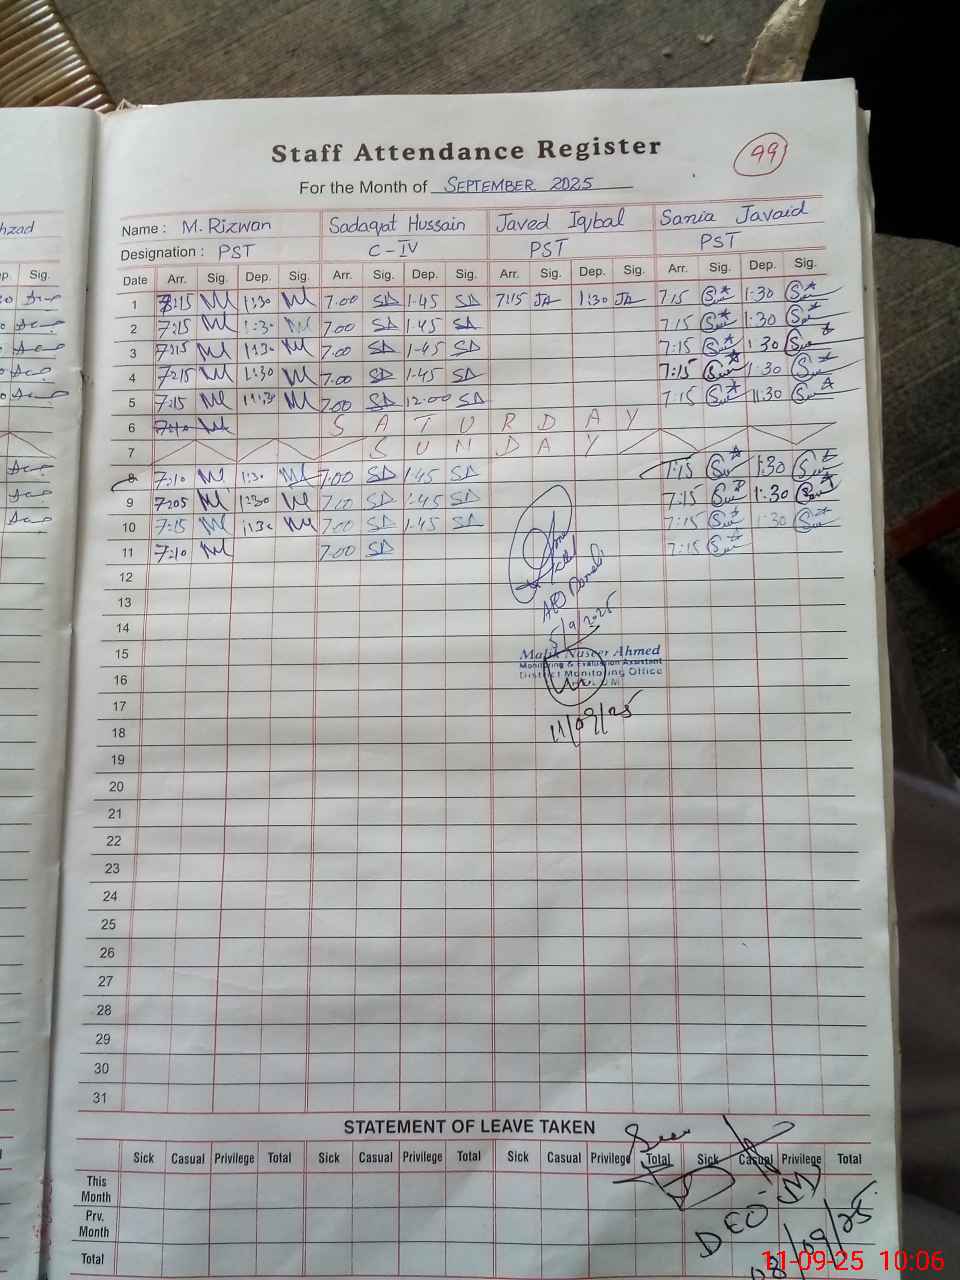 Staff Attendance Register
99
For the Month of SEPTEMBER 2025
hzad
Name : M. Rizwan Sadaqat Hussain Javed Iqbal Sania Javaid
Designation : PST C-IV PST PST
ep. Sig. Date Arr. Sig. Dep. Sig. Arr. Sig. Dep. Sig. Arr. Sig. Dep. Sig. Arr. Sig. Dep. Sig.
1 7:15 1:30 7.00 SD 1-45 SD 7:15 JA 1:30 JA 7:15 1:30
2 7:15 1:30 7.00 SD 1-45 SD 7:15 1:30
3 7:15 1:30 7.00 SD 1-45 SD 7:15 1:30
4 7:15 1:30 7.00 SD 1-45 SD 7:15 1:30
5 7:15 11:30 7.00 SD 12.00 SD 7:15 11:30
6 7:10 S A T U R D A Y
7 S U N D A Y
8 7:10 1:30 7.00 SD 1-45 SD 7:15 1:30
9 7:05 1:30 7.00 SD 1-45 SD 7:15 1:30
10 7:15 1:30 7.00 SD 1-45 SD 7:15 1:30
11 7:10 7.00 SD 7:15
12
13
14
5/9/2025
15
Malik Naseer Ahmed
Monitoring & Evaluation Assistant
District Monitoring Office
16
17
11/09/25
18
19
20
21
22
23
24
25
26
27
28
29
30
31
STATEMENT OF LEAVE TAKEN
Seen
Sick Casual Privilege Total Sick Casual Privilege Total Sick Casual Privilege Total Sick Casual Privilege Total
This Month
Prv. Month
DEO (M)
08/09/25
Total
11-09-25 10:06